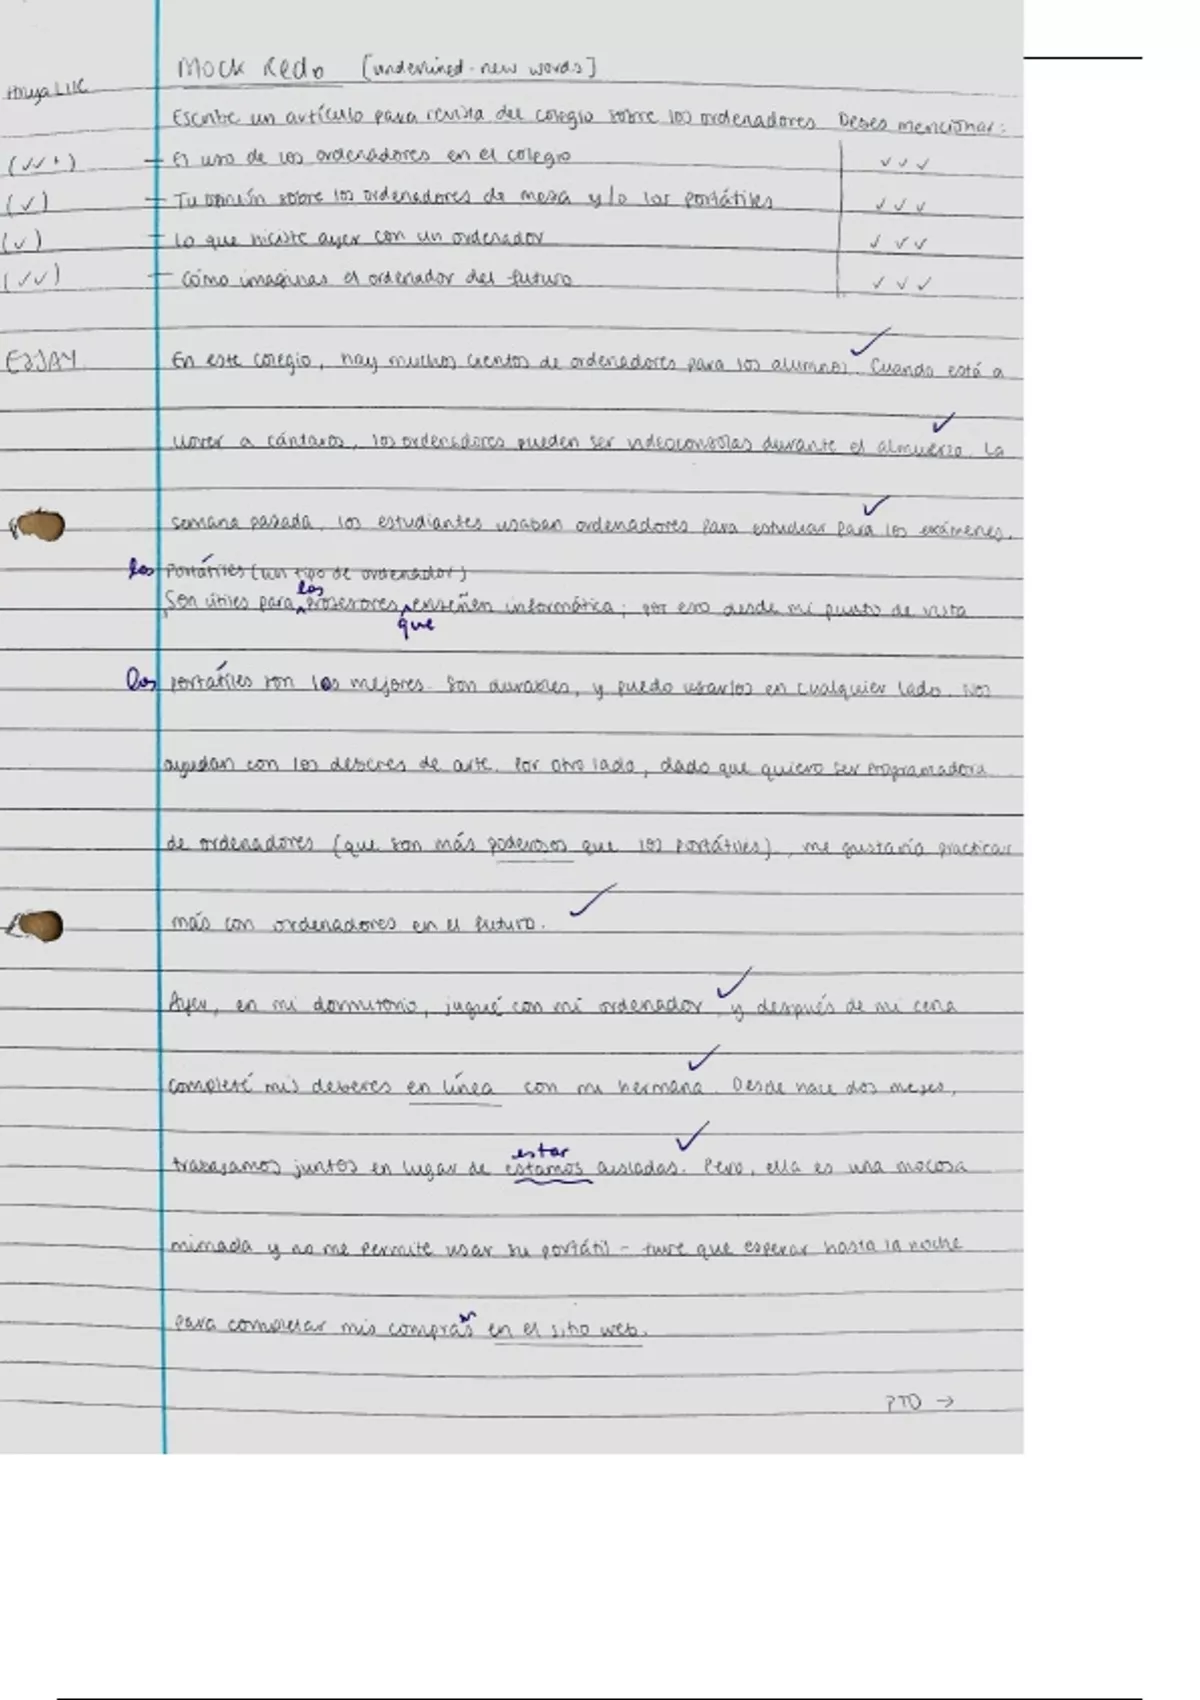 Mock Redo [underlined - new words]
Escribe un artículo para revista del colegio sobre los ordenadores Debes mencionar:
(✓✓+) - El uso de los ordenadores en el colegio ✓✓✓
(✓) - Tu opinión sobre los ordenadores de mesa y/o los portátiles ✓✓✓
(✓) - Lo que hiciste ayer con un ordenador ✓✓✓
(✓✓) - Cómo imaginas el ordenador del futuro ✓✓✓
ESSAY En este colegio, hay muchos cientos de ordenadores para los alumnos. Cuando está a
llover a cántaros, los ordenadores pueden ser videoconsolas durante el almuerzo. La
semana pasada, los estudiantes usaban ordenadores para estudiar para los exámenes.
los portátiles (un tipo de ordenador)
los
Son útiles para profesores enseñen informática; por eso desde mi punto de vista
que
los portátiles son los mejores. Son durables, y puedo usarlos en cualquier lado. Nos
ayudan con los deberes de arte. Por otro lado, dado que quiero ser programadora
de ordenadores (que son más poderosos que los portátiles), me gustaría practicar
más con ordenadores en el futuro.
Ayer, en mi dormitorio, jugué con mi ordenador y después de mi cena
completé mis deberes en línea con mi hermana. Desde hace dos meses,
estar
trabajamos juntos en lugar de estamos aisladas. Pero, ella es una mocosa
mimada y no me permite usar su portátil - tuve que esperar hasta la noche
para completar mis compras en el sitio web.
PTO →